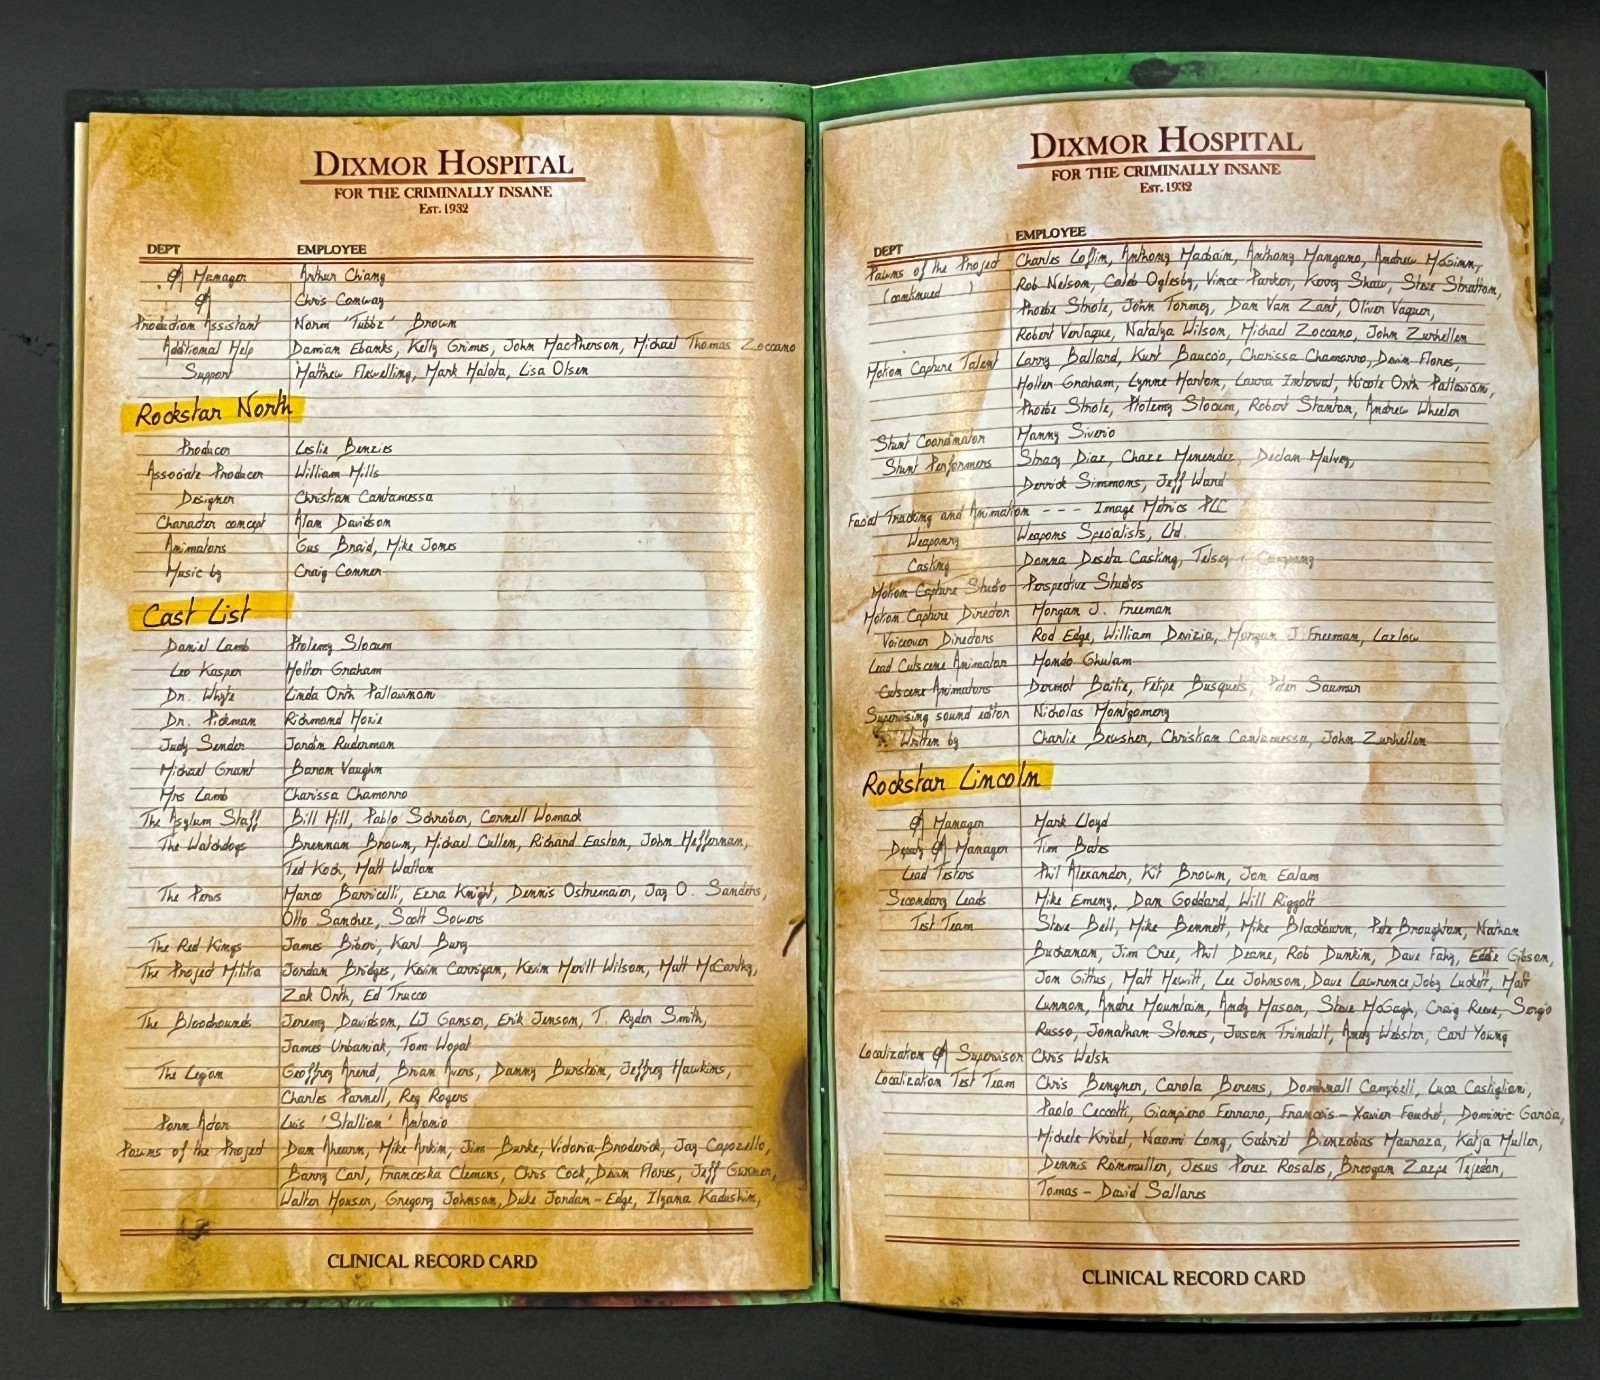 DIXMOR HOSPITAL
FOR THE CRIMINALLY INSANE
EST. 1932
DEPT EMPLOYEE
QA Manager Arthur Chiang
QA Chris Conway
Production Assistant Norm 'Tubbz' Brown
Additional Help Damian Ebanks, Kelly Grimes, John MacPherson, Michael Thomas Zoccano
Support Matthew Flewelling, Mark Halata, Lisa Olsen
Rockstar North
Producer Leslie Benzies
Associate Producer William Mills
Designer Christian Cantamessa
Character concept Alan Davidson
Animators Gus Braid, Mike Jones
Music by Craig Conner
Cast List
Daniel Lamb Ptolemy Slocum
Leo Kasper Holter Graham
Dr. Whyte Linda Orth Pallavinam
Dr. Pickman Richmond Hoxie
Judy Sender Jordin Ruderman
Michael Grant Baron Vaughn
Mrs Lamb Charissa Chamorro
The Asylum Staff Bill Hill, Pablo Schreiber, Cornell Womack
The Watchdogs Brennan Brown, Michael Cullen, Richard Easton, John Heffernan,
Ted Koch, Matt Walton
The Pervs Marco Barricelli, Ezra Knight, Dennis Ostremaier, Jay O. Sanders,
Otto Sanchez, Scott Sowers
The Red Kings James Biberi, Karl Bury
The Project Militia Jordan Bridges, Kevin Carrigan, Kevin Merill Wilson, Matt McCarthy,
Zak Orth, Ed Trucco
The Bloodhounds Jeremy Davidson, LJ Ganser, Erik Jenson, T. Ryder Smith,
James Urbaniak, Tom Wopat
The Legion Geoffrey Arend, Brian Avers, Danny Burstein, Jeffrey Hawkins,
Charles Parnell, Reg Rogers
Porn Actor Luis 'Stallion' Antonio
Pawns of the Project Dan Ahearn, Mike Arkin, Jim Burke, Victoria Broderick, Jay Capozello,
Barry Carl, Franceska Clemens, Chris Cook, Devin Flores, Jeff Gurner,
Walter Houser, Gregory Johnson, Duke Jordan-Edge, Ilyana Kadushin,
CLINICAL RECORD CARD
DIXMOR HOSPITAL
FOR THE CRIMINALLY INSANE
EST. 1932
DEPT EMPLOYEE
Pawns of the Project Charles Loflin, Anthony Macbain, Anthony Mangano, Andrew McGinn,
(continued ) Rob Nelson, Caleb Oglesby, Vince Parker, Kovy Shaw, Steve Stratton,
Phoebe Strole, John Tormey, Dan Van Zant, Oliver Vaquer,
Robert Verlaque, Natalya Wilson, Michael Zoccano, John Zurhellen
Motion Capture Talent Larry Ballard, Kurt Bauccio, Charissa Chamorro, Devin Flores,
Holter Graham, Lynne Harton, Laura Interval, Nicole Orth Pallavinam,
Phoebe Strole, Ptolemy Slocum, Robert Stanton, Andrew Wheeler
Stunt Coordinator Manny Siverio
Stunt Performers Stracy Diaz, Chazz Menendez, Declan Mulvey,
Derrick Simmons, Jeff Ward
Facial Tracking and Animation --- Image Metrics PLC
Weaponry Weapons Specialists, Ltd.
Casting Donna Deseta Casting, Telsey + Company
Motion Capture Studio Perspective Studios
Motion Capture Director Morgan J. Freeman
Voiceover Directors Rod Edge, William Davizia, Morgan J. Freeman, Lazlow
Lead Cutscene Animator Mondo Ghulam
Cutscene Animators Dermot Bailie, Felipe Busquets, Peter Saumur
Supervising sound editor Nicholas Montgomery
Written by Charlie Bewsher, Christian Cantamessa, John Zurhellen
Rockstar Lincoln
QA Manager Mark Lloyd
Deputy QA Manager Tim Bates
Lead Testers Phil Alexander, Kit Brown, Jon Ealam
Secondary Leads Mike Emeny, Dan Goddard, Will Riggott
Test Team Steve Bell, Mike Bennett, Mike Blackburn, Pete Broughton, Nathan
Buchanan, Jim Cree, Phil Deane, Rob Dunkin, Dave Fahy, Eddie Gibson,
Jon Gittus, Matt Hewitt, Lee Johnson, Dave Lawrence, Joby Luckett, Matt
Lunnon, Andre Mountain, Andy Mason, Steve McGagh, Craig Reeve, Sergio
Russo, Jonathan Stones, Jason Trindall, Andy Webster, Carl Young
Localization QA Supervisor Chris Welsh
Localization Test Team Chris Bengner, Carola Berens, Domhnall Campbell, Luca Castiglioni,
Paolo Ceccotti, Giampiero Ferraro, Francois-Xavier Fouchet, Dominic Garcia,
Michele Kribel, Naomi Long, Gabriel Bienzobas Mauraza, Katja Muller,
Dennis Reinmuller, Jesus Perez Rosales, Breogan Zazpe Tejedor,
Tomas-David Sallares
CLINICAL RECORD CARD